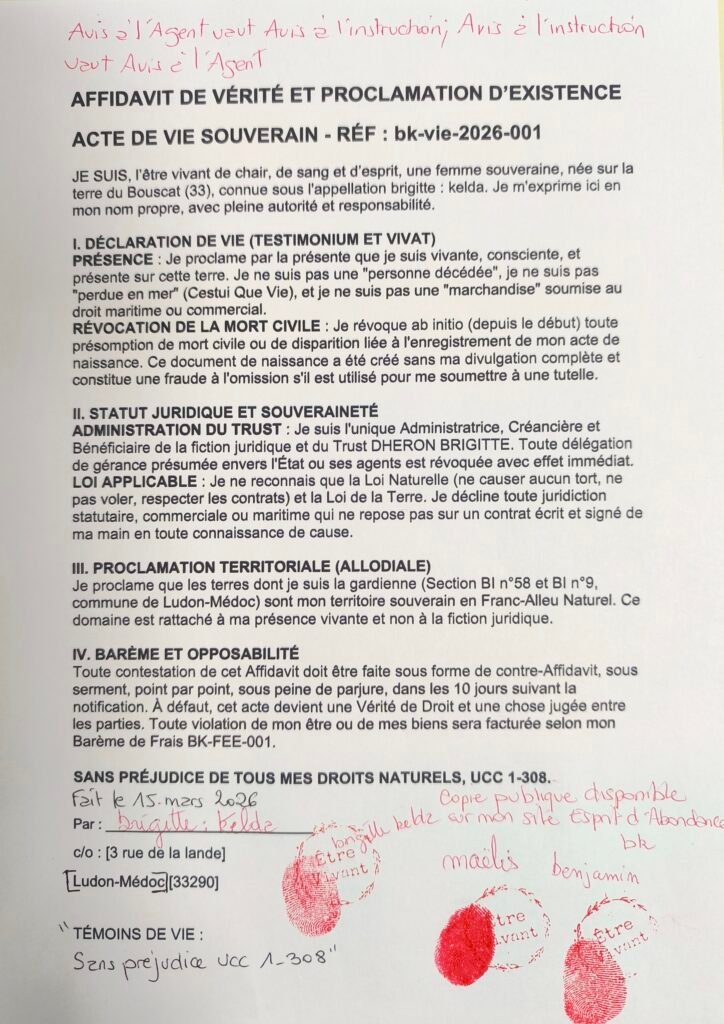 Avis à l'Agent vaut Avis à l'instruction; Avis à l'instruction
vaut Avis à l'Agent
AFFIDAVIT DE VÉRITÉ ET PROCLAMATION D'EXISTENCE
ACTE DE VIE SOUVERAIN - RÉF : bk-vie-2026-001
JE SUIS, l'être vivant de chair, de sang et d'esprit, une femme souveraine, née sur la
terre du Bouscat (33), connue sous l'appellation brigitte : kelda. Je m'exprime ici en
mon nom propre, avec pleine autorité et responsabilité.
I. DÉCLARATION DE VIE (TESTIMONIUM ET VIVAT)
PRÉSENCE : Je proclame par la présente que je suis vivante, consciente, et
présente sur cette terre. Je ne suis pas une "personne décédée", je ne suis pas
"perdue en mer" (Cestui Que Vie), et je ne suis pas une "marchandise" soumise au
droit maritime ou commercial.
RÉVOCATION DE LA MORT CIVILE : Je révoque ab initio (depuis le début) toute
présomption de mort civile ou de disparition liée à l'enregistrement de mon acte de
naissance. Ce document de naissance a été créé sans ma divulgation complète et
constitue une fraude à l'omission s'il est utilisé pour me soumettre à une tutelle.
II. STATUT JURIDIQUE ET SOUVERAINETÉ
ADMINISTRATION DU TRUST : Je suis l'unique Administratrice, Créancière et
Bénéficiaire de la fiction juridique et du Trust DHERON BRIGITTE. Toute délégation
de gérance présumée envers l'État ou ses agents est révoquée avec effet immédiat.
LOI APPLICABLE : Je ne reconnais que la Loi Naturelle (ne causer aucun tort, ne
pas voler, respecter les contrats) et la Loi de la Terre. Je décline toute juridiction
statutaire, commerciale ou maritime qui ne repose pas sur un contrat écrit et signé de
ma main en toute connaissance de cause.
III. PROCLAMATION TERRITORIALE (ALLODIALE)
Je proclame que les terres dont je suis la gardienne (Section BI n°58 et BI n°9,
commune de Ludon-Médoc) sont mon territoire souverain en Franc-Alleu Naturel. Ce
domaine est rattaché à ma présence vivante et non à la fiction juridique.
IV. BARÈME ET OPPOSABILITÉ
Toute contestation de cet Affidavit doit être faite sous forme de contre-Affidavit, sous
serment, point par point, sous peine de parjure, dans les 10 jours suivant la
notification. À défaut, cet acte devient une Vérité de Droit et une chose jugée entre
les parties. Toute violation de mon être ou de mes biens sera facturée selon mon
Barème de Frais BK-FEE-001.
SANS PRÉJUDICE DE TOUS MES DROITS NATURELS, UCC 1-308.
Fait le 15. mars 2026
Copie publique disponible
sur mon site Esprit d'Abondance
bk
Par : brigitte : kelda
brigitte kelda
c/o : [3 rue de la lande]
maëlis
benjamin
[Ludon-Médoc] [33290]
Être
Vivant
Être
Vivant
Être
Vivant
"TÉMOINS DE VIE :
Sans préjudice UCC 1-308"